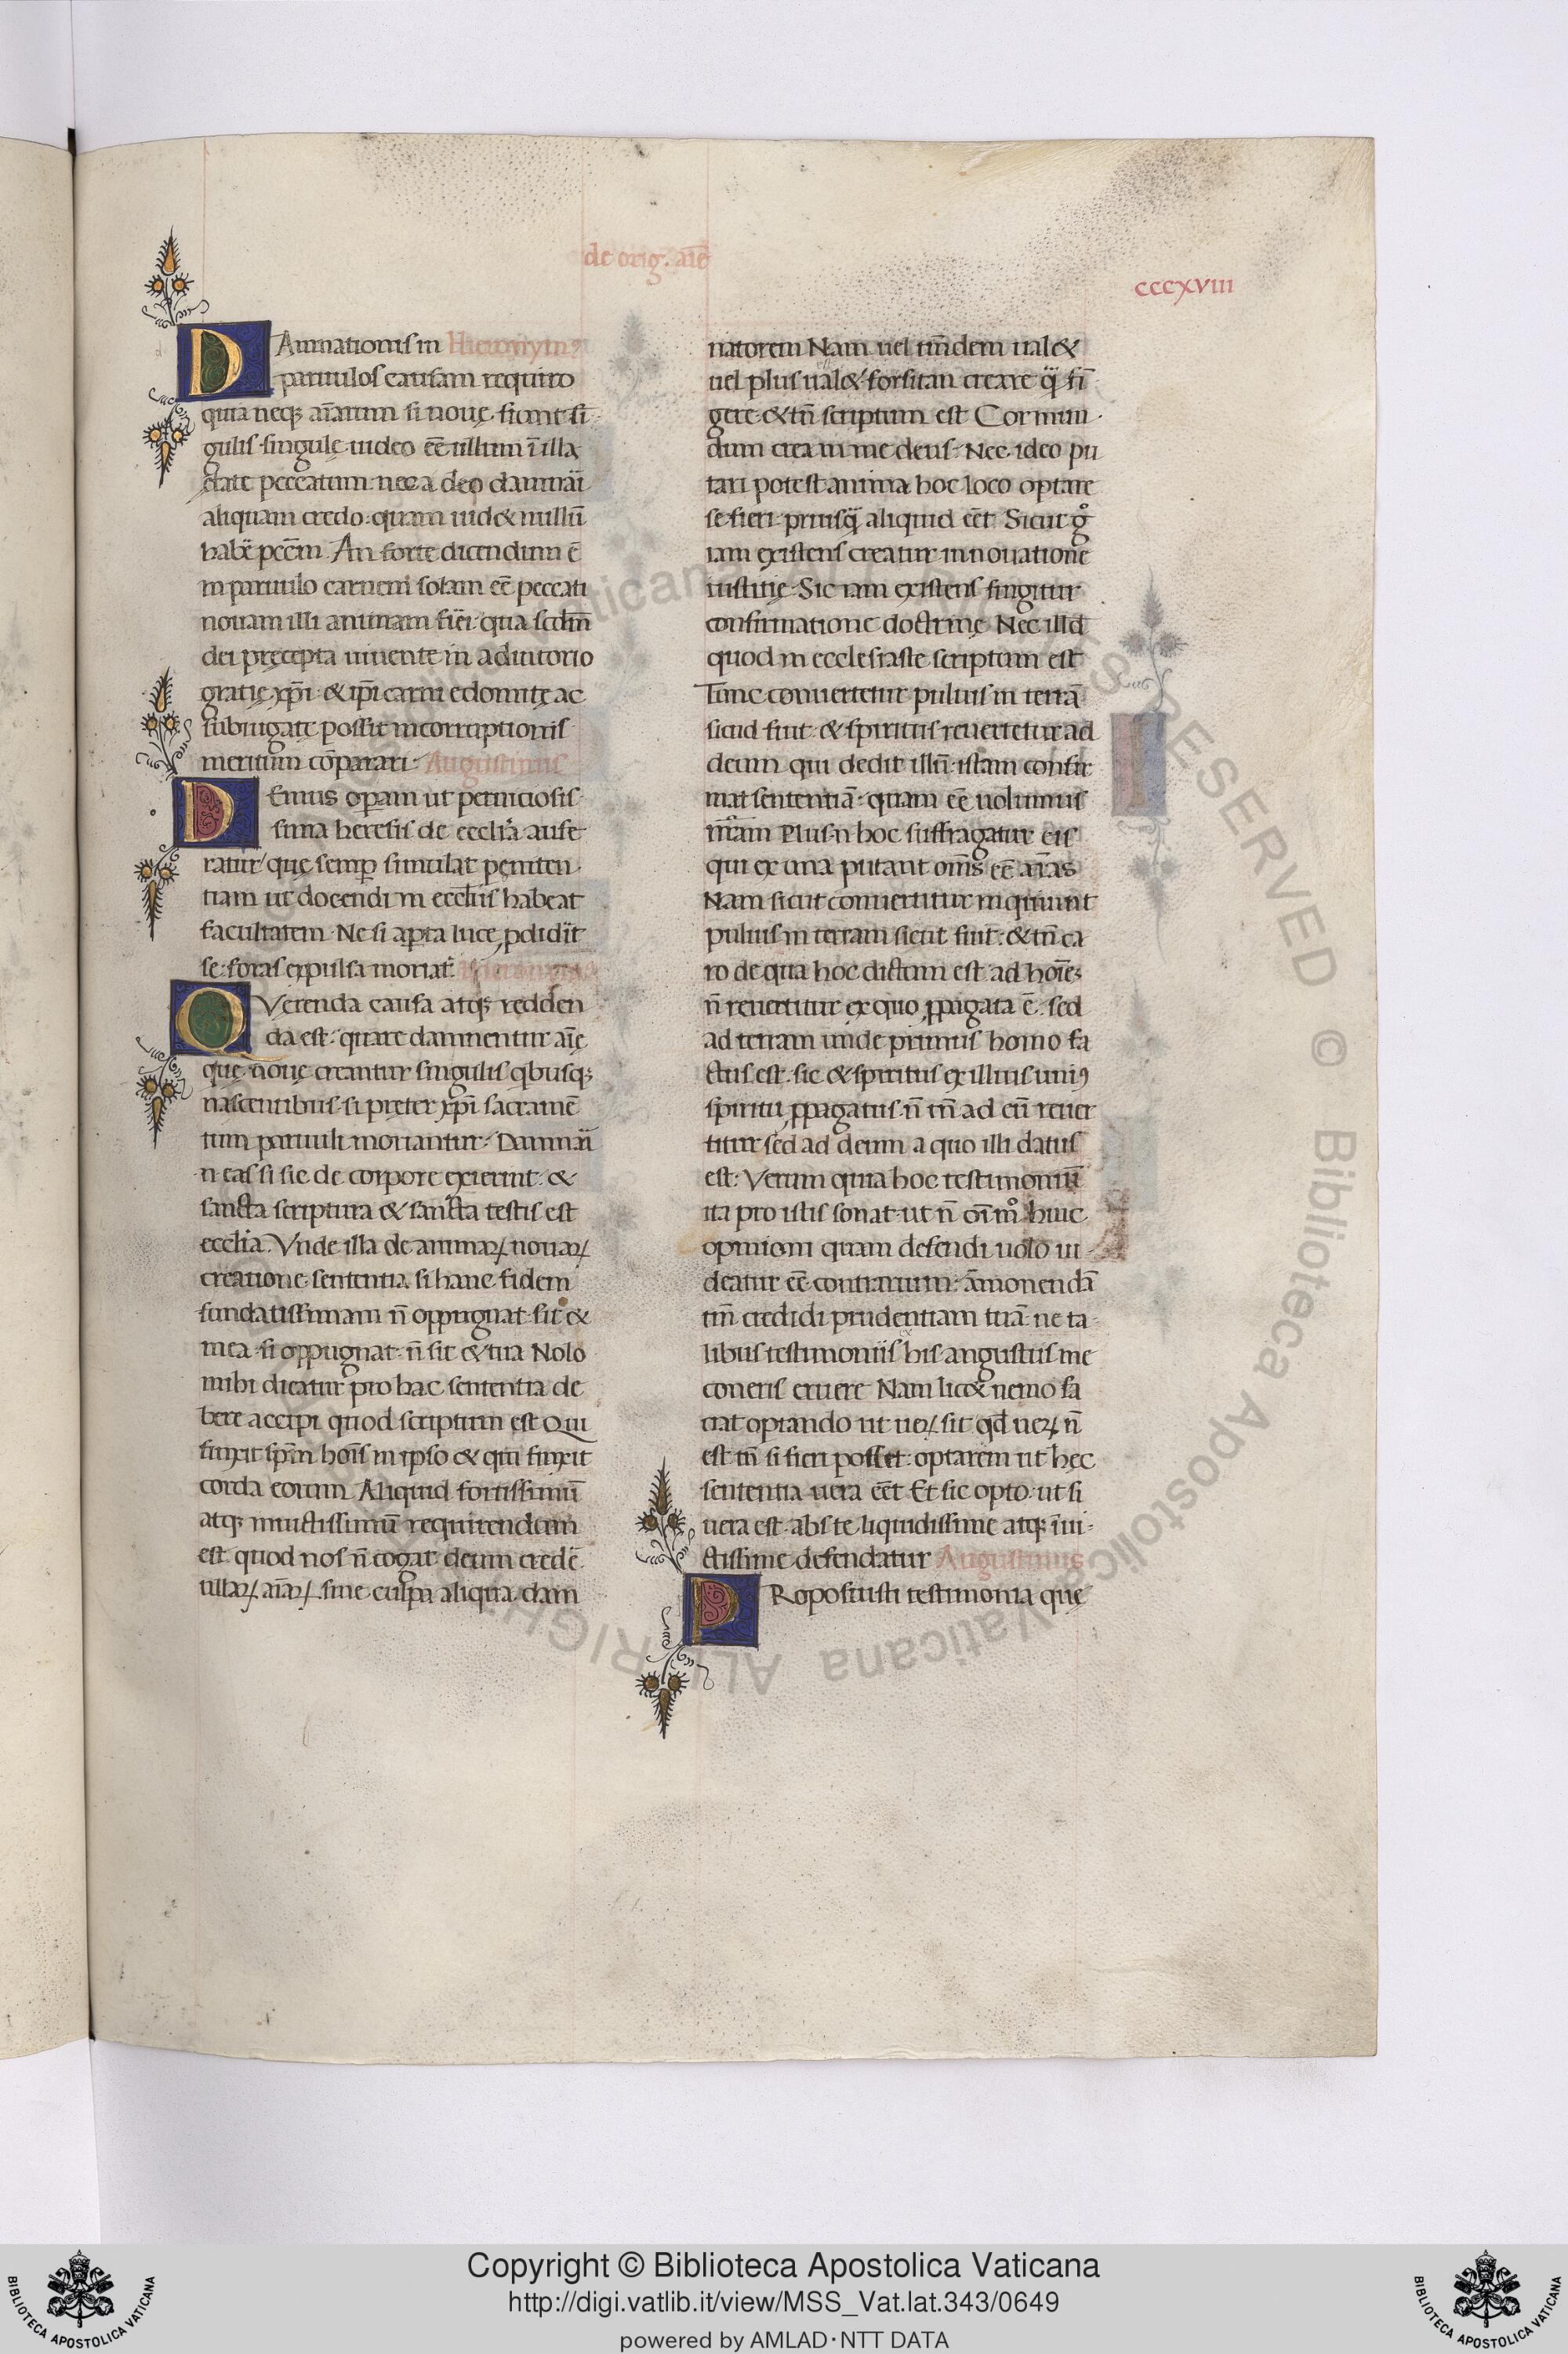 de orig. aīe
cccxviii
DAmnationis in Hieronym9
paruulos causam requiro
quia neq; aīarum si nouę fiunt sī
gulis singulę uideo eē ullum ī illa
ętate peccatum: nec a deo damnāi
aliquam credo: quam uid& nullū
habē pccm̄. An forte dicendum ē
in paruulo carnem solam eē peccati
nouam illi animam fieri: qua scdm̄
dei pręcepta uiuente in adiutorio
gratię xp̄i: & ip̄i carni edomitę ac
subiugatę possit incorruptionis
meritum cōparari. Augustinus
DEmus oꝑam ut perniciosis
sima heresis de ecclīa aufe
ratur que semꝑ simulat pęniten
tiam ut docendi in ecclīis habeat
facultatem. Ne si aꝑta luce ꝓdidīt
se: foras expulsa moriat̄.
QVerenda causa atq; redden
da est: quare damnentur aīę
quę nouę creantur singulis qbusq;
nascentibus: si preter xp̄i sacramē
tum paruuli moriantur. Damnāi
n. eas si sic de corpore exierint: &
sancta scriptura & sancta testis est
ecclīa. Vnde illa de animaꝝ nouaꝝ
creatione sententia si hanc fidem
fundatissimam n̄ oppugnat: sit &
mea. si oppugnat: n̄ sit & tua. Nolo
mihi dicatur pro hac sententia de
bere accipi quod scriptum est Qui
finxit sp̄m hoīs in ipso & qui finxit
corda eorum. Aliquid fortissimū
atq; inuictissimū requirendum
est quod nos n̄ cogat deum credē
ullaꝝ aīaꝝ sine culpa aliqua dam
natorem Nam uel tm̄dem ual&
uel plus ual& forsitan creare q̄ fī
gere. & tn̄ scriptum est Cor mun
dum crea in me deus. Nec ideo pu
tari potest anima hoc loco optare
se fieri priusq̄ aliquid eēt. Sicut gͦ
iam existens creatur innouatione
iustitię. Sic iam existens fingitur
confirmatione doctrinę. Nec illd̄
quod in ecclesiaste scriptum est
Tunc conuertetur puluis in terrā
sicud fuit: & spiritus reuertetur ad
deum qui dedit illū: istam confir
mat sententiā: quam eē uolumus
nr̄am Plus n̄ hoc suffragatur eis
qui ex una putant om̄s eē aīas
Nam sicut conuertitur inquiunt
puluis in terram sicut fuit: & tn̄ ca
ro de qua hoc dictum est ad hoīe;
n̄ reuertitur ex quo ꝓpagata ē. sed
ad terram unde primus homo fa
ctus est. sic & spiritus ex illius uni9
spiritu ꝓpagatus n̄ tn̄ ad eū reuer
titur sed ad deum a quo illi datus
est. Verum quia hoc testimoniū
ita pro istis sonat: ut n̄ oīmͦ huic
opinioni quam defendi uolo ui
deatur eē contrarium. āmonendā
tm̄ credidi prudentiam tuā: ne ta
libus testimoniis his angustiis me
coneris eruere Nam lic& nemo fa
ciat optando ut ueꝝ sit qd̄ ueꝝ n̄
est tn̄ si fieri posset: optarem ut hęc
sententia uera eēt. Et sic opto: ut si
uera est: abs te liquidissime atq; īui
ctissime defendatur Augustinus
PRoposuisti testimonia quę
Copyright © Biblioteca Apostolica Vaticana
http://digi.vatlib.it/view/MSS_Vat.lat.343/0649
powered by AMLAD·NTT DATA